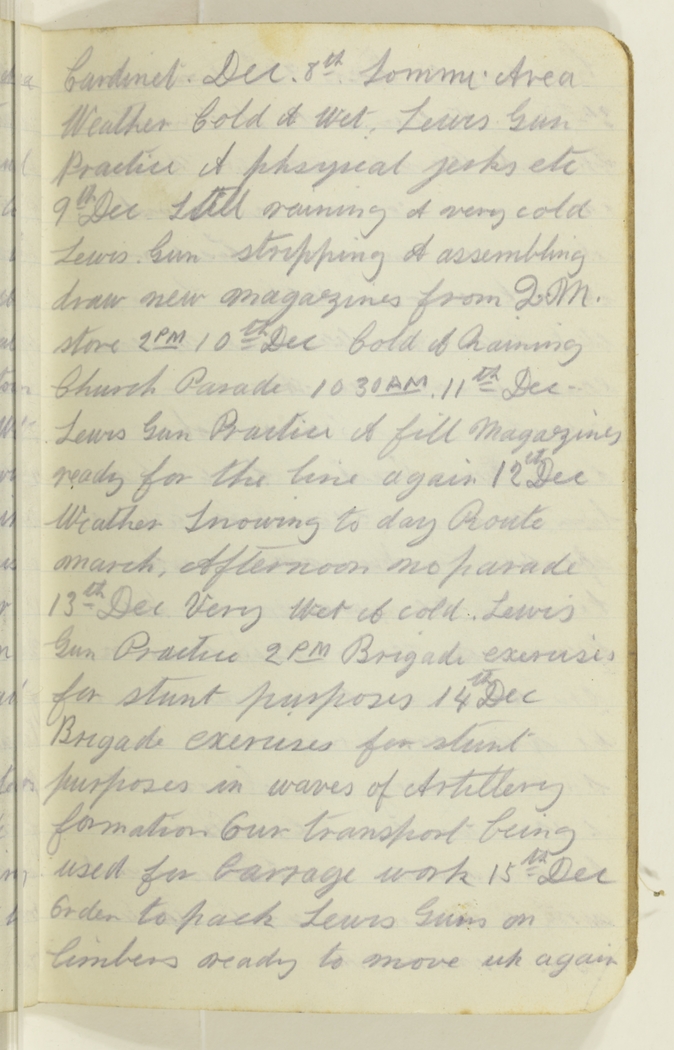 Cardinet. Dec. 8th Somme Area
Weather Cold & Wet, Lewis Gun
Practice & phsysical jerks etc
9th Dec Still raining & very cold
Lewis Gun stripping & assembling
draw new magazines from Q.M.
store 2PM 10th Dec Cold & Raining
Church Parade 10 30AM. 11th Dec-
Lewis Gun Practice & fill Magazines
ready for the line again 12th Dec
Weather Snowing to day Route
march, Afternoon no parade
13th Dec Very Wet & cold. Lewis
Gun Practice 2PM Brigade exercises
for stunt purposes 14th Dec
Brigade exercises for stunt
purposes in waves of Artillery
formation Our transport being
used for barrage work 15th Dec
Order to pack Lewis Guns on
limbers ready to move up again